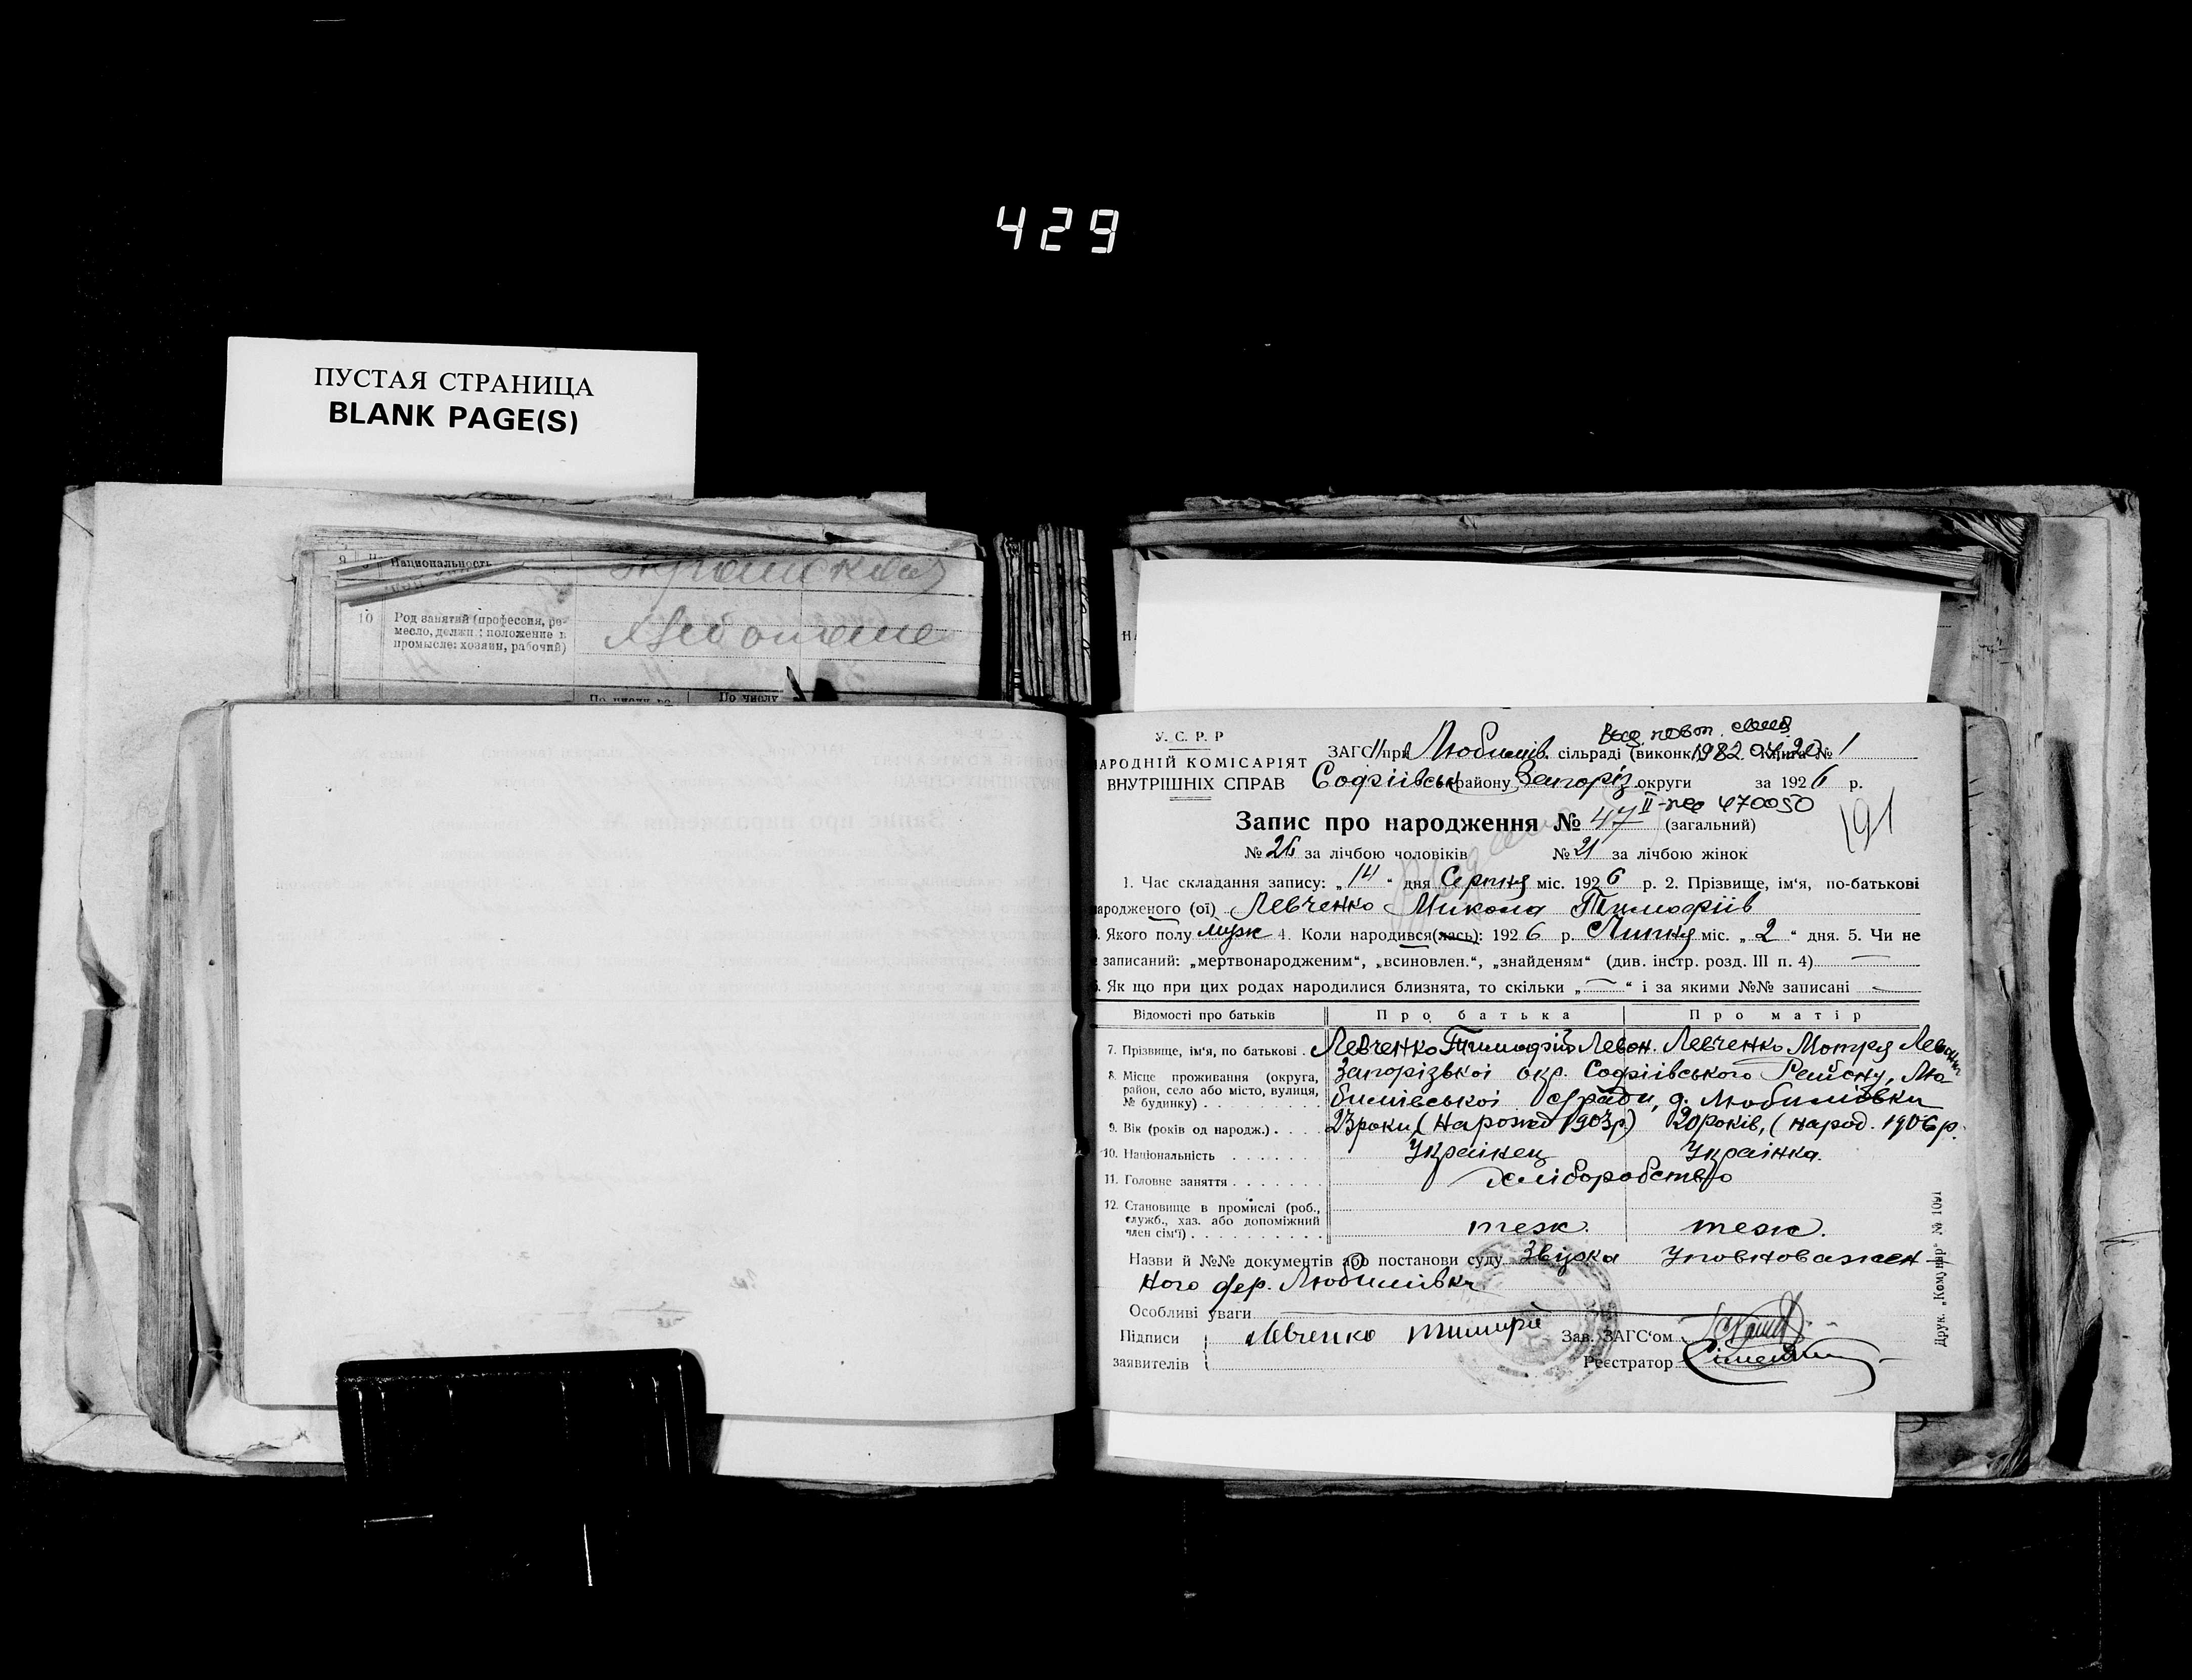 429
ПУСТАЯ СТРАНИЦА
BLANK PAGE(S)
9 Национальность
10 Род занятий (профессия, ре-
месло, должн.: положение в
промысле: хозяин, рабочий)
По числу
У. С. Р. Р
АРОДНІЙ КОМІСАРІЯТ
ВНУТРІШНІХ СПРАВ
Выд. повт. свид.
ЗАГС при Любимів. сільраді (виконк. 1982 Книга № 1
Софіївськ району Запоріз. округи за 1926 р.
II-ЖС 470050
Запис про народження № 47 (загальний)
191
№ 26 за лічбою чоловіків № 21 за лічбою жінок
1. Час складання запису: „14“ дня Серпня міс. 1926 р. 2. Прізвище, ім'я, по-батькові
народженого (ої) Левченко Микола Тимофіїв
3. Якого полу муж 4. Коли народився(лась): 1926 р. Липня міс. „2“ дня. 5. Чи не
записаний: „мертвонародженим“, „всиновлен.“, „знайденям“ (див. інстр. розд. III п. 4)
6. Як що при цих родах народилися близнята, то скільки „—“ і за якими №№ записані —
Відомості про батьків Про батька Про матір
7. Прізвище, ім'я, по батькові . Левченко Тимофій Левон. Левченко Мотря Левон
8. Місце проживання (округа, район, село або місто, вулиця, № будинку) . . . Запорізької окр. Софіївського Району, Лю
бимівської с/ради, д. Любимівки
9. Вік (років од народж.) . . . 23 роки, (Народж 1903р.) 20 років, (народ. 1906 р.
10. Національність . . . Українец Українка.
11. Головне заняття . . . хліборобство
12. Становище в промислі (роб.,
служб., хаз. або допоміжний
член сім'ї) . . . теж. теж.
Назви й №№ документів або постанови суду Звістка Уповноважен-
ного дер. Любимівки
Особливі уваги
Підписи Левченко Зав. ЗАГС'ом
заявителів Реєстратор
Друк. „Комунар“ № 1091